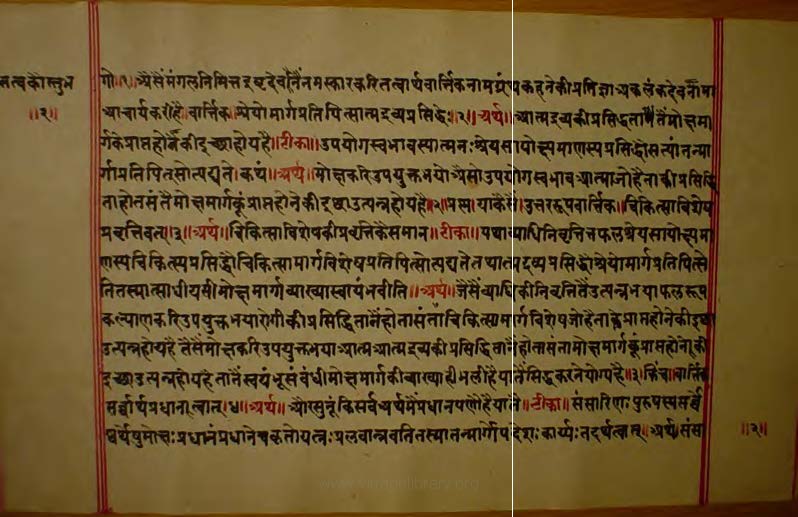 तत्वकौस्तुभ
॥२॥
गो॥१॥ ऐसैं मंगलनिमित्त इष्टदेवनैं नमस्कार करि तत्वार्थवार्त्तिकनाम ग्रंथ कहनेकी प्रतिज्ञा अकलंकदेवनामा
आचार्य करी है॥ वार्त्तिक॥ श्रेयोमार्गप्रतिपित्सात्मद्रव्यप्रसिद्धेः॥२॥ अर्थ॥ आत्मद्रव्यकी प्रसिद्धतातैं मोक्षमा
र्गके प्राप्त होनेकी इच्छा होय है॥ टीका॥ उपयोगस्वभावस्यात्मनः श्रेयसायोक्ष्यमाणस्य प्रसिद्धौ सत्यां तन्मा
र्गप्रतिपित्सोत्पद्यते। कथं॥ अर्थ॥ मोक्षकरि उपयुक्त भयो ऐसो उपयोगस्वभाव आत्मा जो है ताकी प्रसिद्धि
ता होत संतैं मोक्षमार्गकूं प्राप्त होनेकी इच्छा उत्पन्न होय है॥ प्रश्न॥ या कैसैं॥ उत्तररूप वार्त्तिक॥ चिकित्साविशेष
प्रवृत्तिवत्॥३॥ अर्थ॥ चिकित्साविशेषकी प्रवृत्तिकै समान॥ टीका॥ यथा व्याधिनिवृत्तिजफलश्रेयसायोक्ष्यमा
णस्य चिकित्स्यप्रसिद्धौ चिकित्सामार्गविशेषप्रतिपित्सोत्पद्यते तथात्मद्रव्यप्रसिद्धौ श्रेयोमार्गप्रतिपित्से
ति तस्मात्साधीयसी मोक्षमार्गव्याख्या स्वायंभवीति॥ अर्थ॥ जैसैं व्याधिकी निवृत्तितैं उत्पन्न भया फलरूप
कल्याणकरि उपयुक्त भया रोगीकी प्रसिद्धितानैं होता संतां चिकित्सामार्गविशेष जो है ताके प्राप्त होनेकी इच्छा
उत्पन्न होय है तैसैं मोक्षकरि उपयुक्त भया आत्म आत्मद्रव्यकी प्रसिद्धितानैं होता संता मोक्षमार्गकूं प्राप्त होनेकी
इच्छा उत्पन्न होय है तातैं स्वयंभूसंबंधी मोक्षमार्गकी व्याख्या ही भली है यातैं सिद्ध करने योग्य है॥३॥ किंच॥ वार्त्तिक
सर्वार्थप्रधानत्वात्॥४॥ अर्थ॥ और सुनूं कि सर्व अर्थमैं प्रधानपणो है यातैं॥ टीका॥ संसारिणः पुरुषस्य सर्वे
ष्वर्थेषु मोक्षः प्रधानं प्रधाने च कृतो यत्नः फलवान् भवति तस्मात्तन्मार्गोपदेशः कार्य्यः तदर्थत्वात्॥ अर्थ॥ संसा
॥२॥